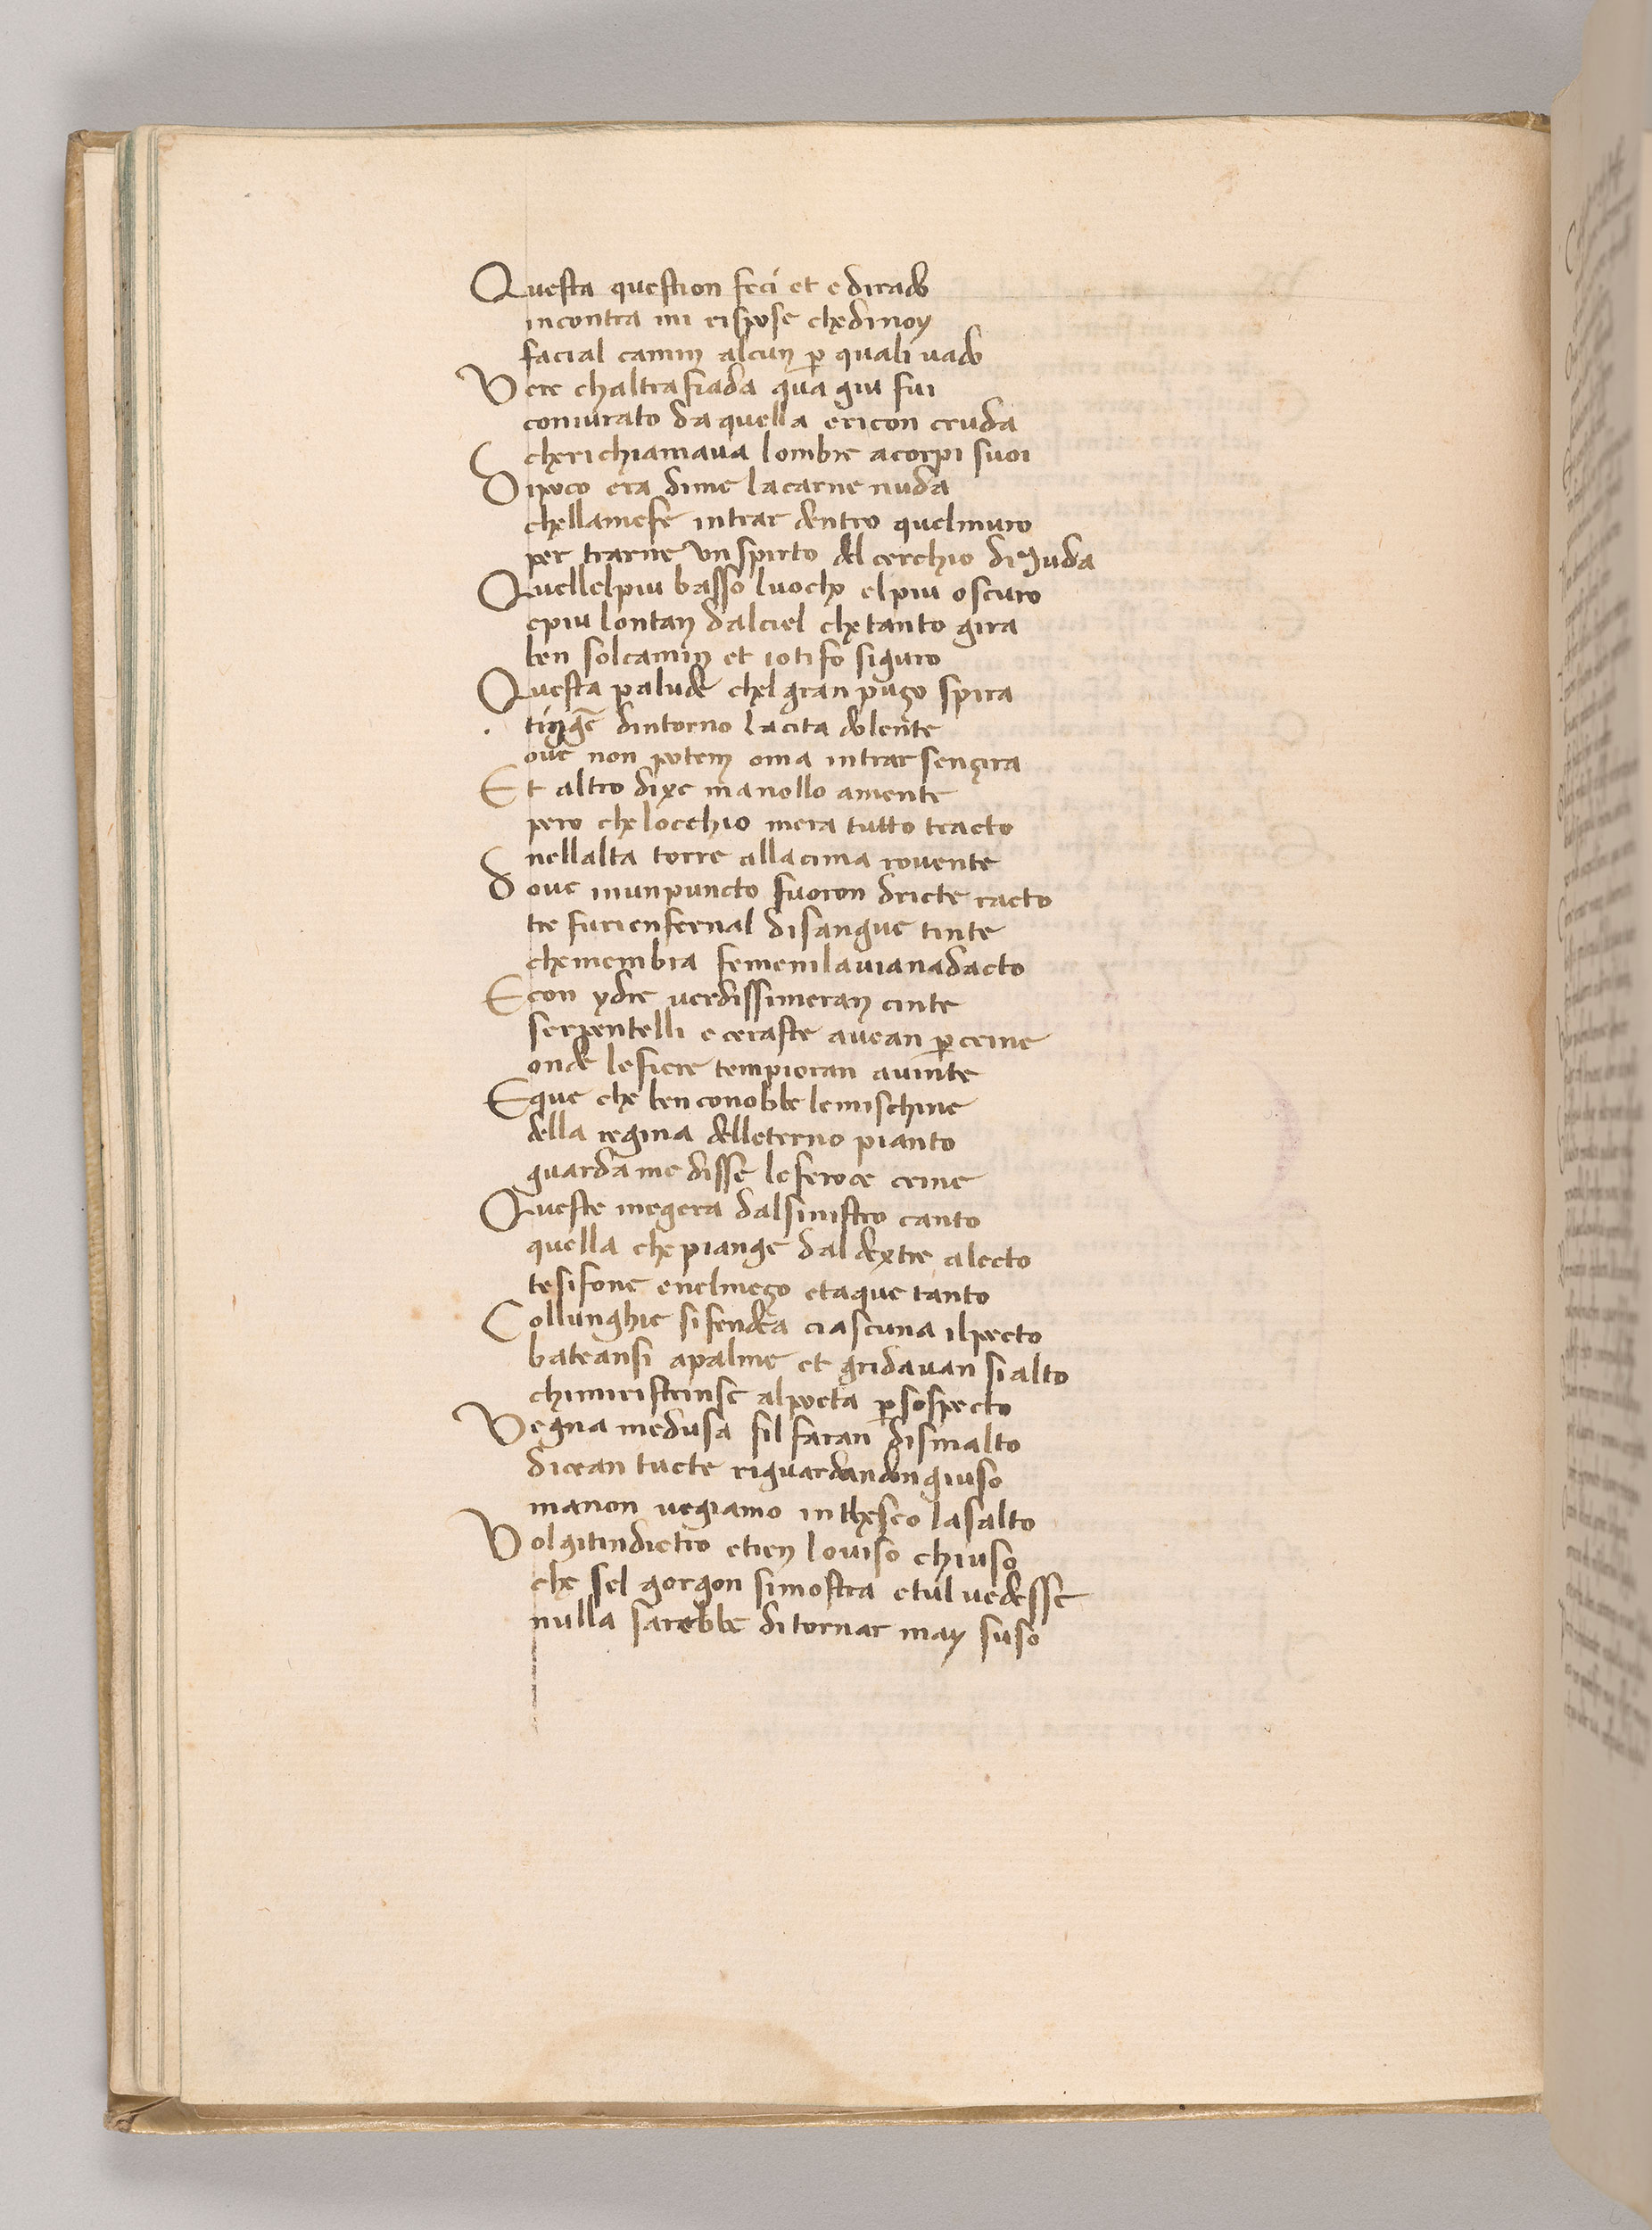 Questa question feci et e dirado
incontra mi rispose che di noy
facial camin alcun p quali uado
Vere chaltra fiada qua giu fui
coniurato da quella ericon cruda
che richiamaua lombre a corpi suoi
Di poco era di me la carne nuda
chella me fe intrar dentro quel muro
per trarne vn spirto del cerchio di Juda
Quellel piu basso luocho el piu oscuro
e piu lontan dal ciel che tanto gira
ben sol camin et io ti fo siguro
Questa palude chel gran puço spira
cinge dintorno la cita dolente
oue non potem oma intrar sençira
Et altro dixe ma nollo a mente
pero che locchio mera tutto tracto
nellalta torre alla cima rouente
Doue in un puncto fuoron dricte racto
tre furi enfernal di sangue tinte
che membra femenil auian ad acto
E con ydre uerdissimeran cinte
serpentelli e ceraste auean p crine
onde le fiere tempieran auinte
E que che ben conobbe le mischine
della regina delleterno pianto
guarda me disse le feroce erine
Queste megera dal sinistro canto
quella che piange dal dextre alecto
tesifone enel meço etaque tanto
Coll unghie si fendea ciascuna il pecto
bateansi a palme et gridauan si alto
chi mi ristrinse al poeta p sospecto
Vegna medusa sil faran di smalto
dicean tucte riguardandon giuso
ma non uegiamo in theseo lasalto
Volgitindietro etien lo uiso chiuso
che sel gorgon si mostra e tul uedesse
nulla sarebbe di tornar may suso